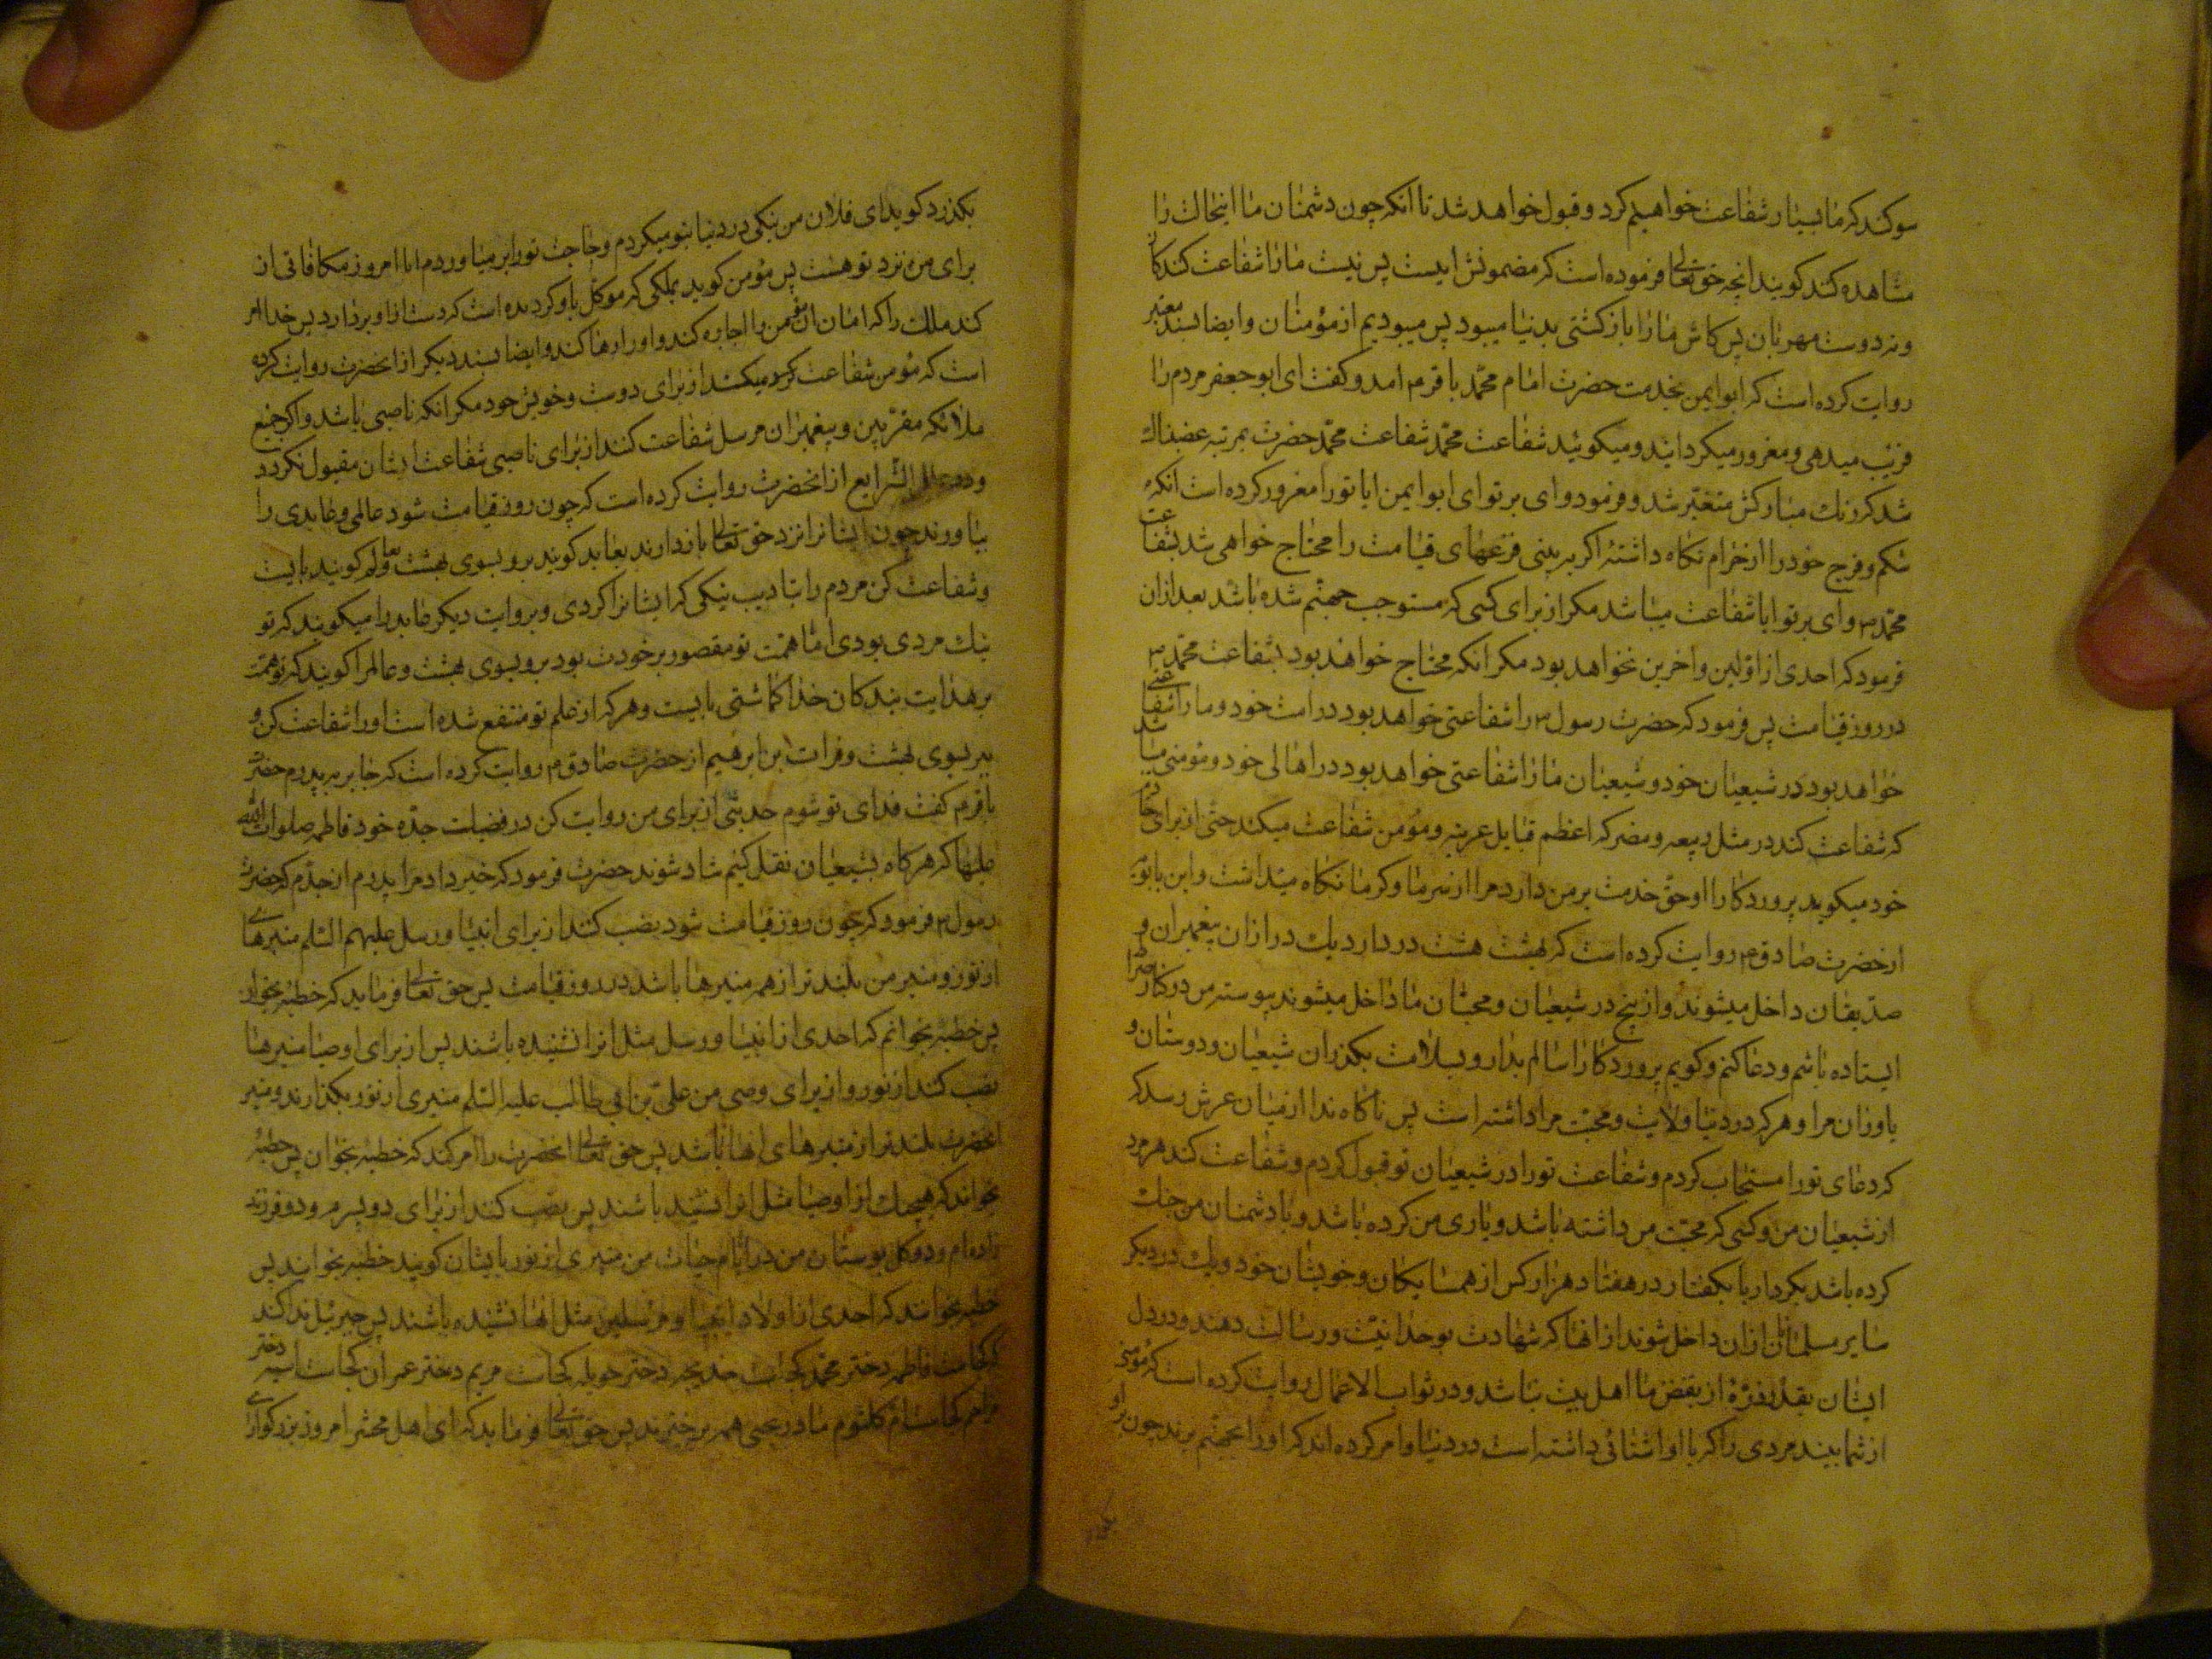 سوکند که ما بسیار شفاعت خواهیم کرد و قبول خواهد شد تا انکه چون دشمنان ما اینحالت را
مشاهده کند کویند انچه حق تعالی فرموده است که مضمونش اینست پس نیست ما را شفاعت کنندکان
و نه دوست مهربان پس کاش ما را باز کشتی بدنیا میبود پس میبودیم از مؤمنان و ایضا بسند معتبر
روایت کرده است که ابو ایمن بخدمت حضرت امام محمد باقر م امد و کفت ای ابو جعفر مردم را
فریب میدهی و مغرور میکردانید و میکوئید شفاعت محمد شفاعت محمد حضرت بمرتبه غضبناک
شد که رنک مبارکش متغیر شد و فرمود وای بر تو ای ابو ایمن ایا تو را مغرور کرده است انکه
شکم و فرج خود را از حرام نکاه داشتهٔ اکر به بینی فزعهای قیامت را محتاج خواهی شد بشفاعت
محمد م وای بر تو ایا شفاعت میباشد مکر از برای کسی که مستوجب جهنم شده باشد بعد از ان
فرمود که احدی از اولین و اخرین نخواهد بود مکر انکه محتاج خواهند بود بشفاعت محمد م
در روز قیامت پس فرمود که حضرت رسول م را شفاعتی خواهد بود در امت خود و ما را شفاعتی
خواهد بود در شیعیان خود و شیعیان ما را شفاعتی خواهد بود در اهالی خود و مؤمنی میباشد
که شفاعت کند در مثل ربیعه و مضر که اعظم قبایل عربند و مؤمن شفاعت میکند حتی از برای خادم
خود میکوید پروردکارا او حق خدمت بر من دارد مرا از سرما و کرما نکاه میداشت و ابن بابویه
از حضرت صادق م روایت کرده است که بهشت هشت در دارد یک در از ان پیغمبران و
صدیقان داخل میشوند و از پنج در شیعیان و محبان ما داخل میشوند پیوسته من در کنار صراط
ایستاده باشم و دعا کنم و کویم پروردکارا سالم بدار و بسلامت بکذران شیعیان و دوستان و
یاوران مرا و هر که در دنیا ولایت و محبت مرا داشته است پس ناکاه ندا از میان عرش رسد که
که دعای تو را مستجاب کردم و شفاعت تو را در شیعیان تو قبول کردم و شفاعت کند هر مرد
از شیعیان من و کسی که محبت من داشته باشد و یاری من کرده باشد و با دشمنان من جنک
کرده باشد بکردار یا بکفتار در هفتاد هزار کس از همسایکان و خویشان خود و یک در دیکر
سایر مسلمانان از ان داخل شوند از انها که شهادت بوحدانیت و رسالت دهند و در دل
ایشان بقدر ذرهٔ از بغض ما اهل بیت نباشد و در ثواب الاعمال روایت کرده است که مؤمنی
از شما بیند مردی را که با او اشنائی داشته است در دنیا و امر کرده اند که او را بجهنم برند چون بر او
بکذرد کوید ای فلان من نیکی در دنیا بتو میکردم و حاجت تو را بر میاوردم ایا امروز مکافاتی ان
برای من نزد تو هست پس مؤمن کوید بملکی که موکل باو کردیده است که دست از او بردارد پس خدا امر
کند ملک را که امان ان مؤمن را اجازه کند و او را رها کند و ایضا بسند دیکر از انحضرت روایت کرده
است که مؤمن شفاعت میکند از برای دوست و خویش خود مکر انکه ناصبی باشد و اکر جمیع
ملائکه مقربین و پیغمبران مرسل شفاعت کنند از برای ناصبی شفاعت ایشان مقبول نکردد
و در علل الشرایع از انحضرت روایت کرده است که چون روز قیامت شود عالمی و عابدی را
بیاورند چون ایشانرا نزد حق تعالی بازدارند بعابد کویند برو بسوی بهشت و بعالم کویند بایست
و شفاعت کن مردم را بتادیب نیکی که ایشانرا کردی و بروایت دیکر عابد را میکویند که تو
نیک مردی بودی اما همت تو مقصور بر خودت بود برو بسوی بهشت و عالم را کویند که تو همت
بر هدایت بندکان خدا کماشتی بایست و هر که از علم تو منتفع شده است او را شفاعت کن و
ببر بسوی بهشت و فرات ابن ابرهیم از حضرت صادق م روایت کرده است که جابر به پدرم حضرت
باقر م کفت فدای تو شوم حدیثی از برای من روایت کن در فضیلت جدهٔ خود فاطمه صلوات الله
علیها که هر کاه بشیعیان نقل کنم شاد شوند حضرت فرمود که خبر داد مرا پدرم از جدم که حضرت
رسول م فرمود که چون روز قیامت شود نصب کنند از برای انبیا و رسل علیهم السلم منبرهای
از نور و منبر من بلندتر از همه منبرها باشد در روز قیامت پس حق تعالی فرماید که خطبه بخوان
پس خطبهٔ بخوانم که احدی از انبیا و رسل مثل انرا نشنیده باشند پس از برای اوصیا منبرها
نصب کنند از نور و از برای وصی من علی بن ابی طالب علیه السلم منبری از نور بکذارند و منبر
انحضرت بلندتر از منبرهای انها باشد پس حق تعالی انحضرت را امر کند که خطبهٔ بخوان پس خطبهٔ
بخواند که هیچیک از اوصیا مثل انرا نشنیده باشند پس نصب کنند از برای دو پسرم و دو فرزند
زاده ام و دو کل بوستان من در ایام حیات من منبری از نور بایشان کویند خطبه بخوانند پس
خطبه بخوانند که احدی از اولاد انبیا و مرسلین مثل انها نشنیده باشند پس جبرئیل ندا کند
که کجاست فاطمه دختر محمد کجاست خدیجه دختر خویلد کجاست مریم دختر عمران کجاست اسیه دختر
مزاحم کجاست ام کلثوم مادر یحیی همه برخیزند پس حق تعالی فرماید که ای اهل محشر امروز بزرکواری